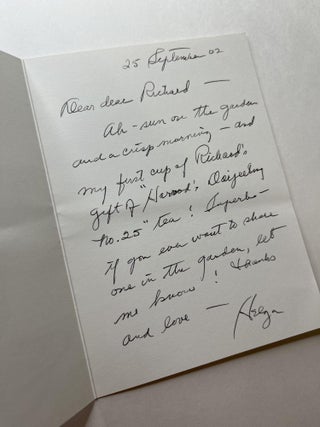 25 September 02
Dear dear Richard —
Ah - sun on the garden
and a crisp morning — and
my first cup of Richard's
gift of "Harrod's, Darjeeling
No. 25" tea! Superb —
If you ever want to share
one in the garden, let
me know! Thanks
and love —
Helga